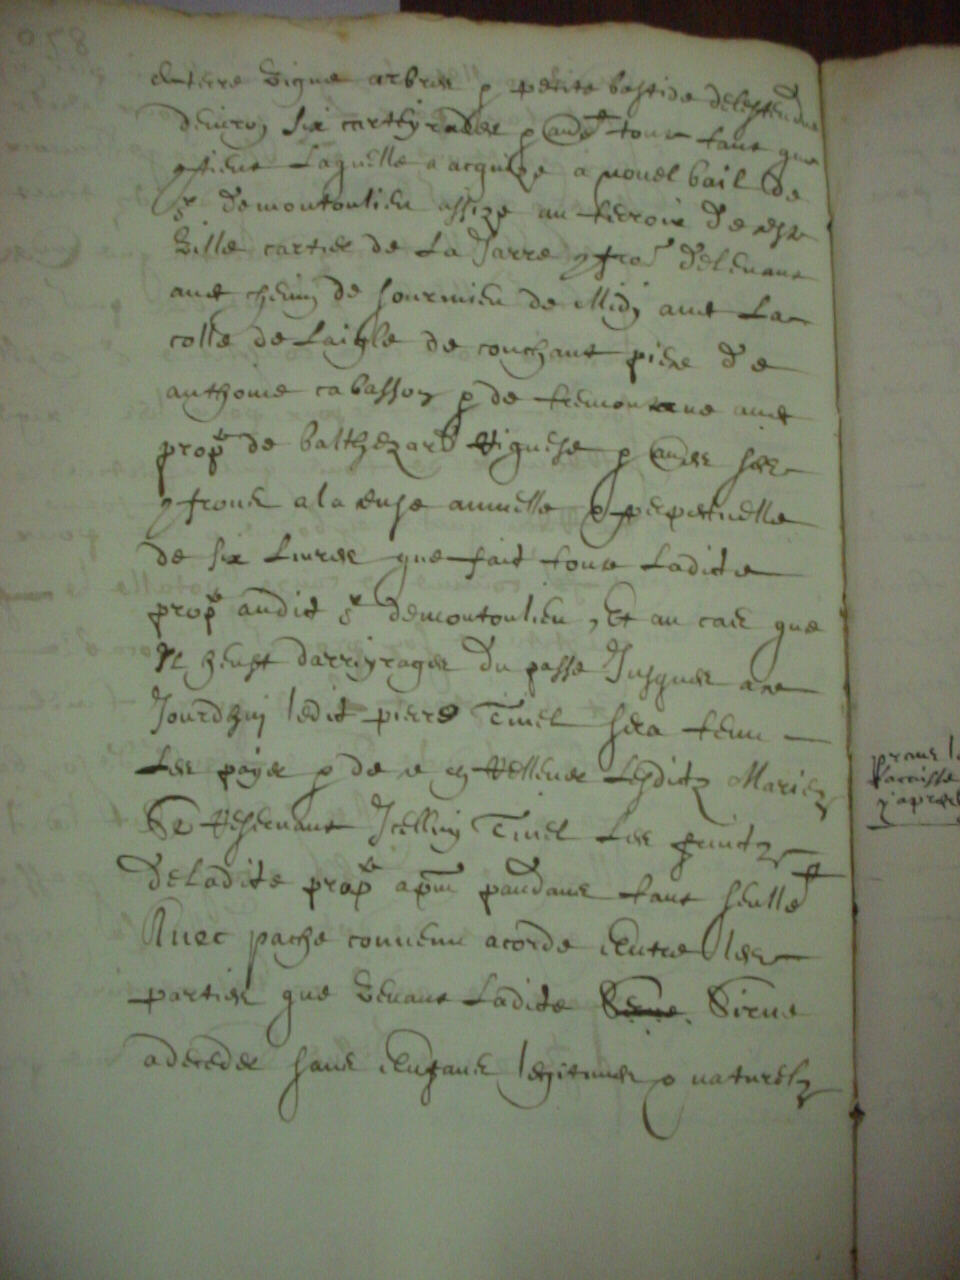 en terre vigne arbres & petite bastide de lestendue
denviron six carteyrades & aude tout tant que
contient Laquelle a acquize a nouel bail de
sr demontoulieu assize au terroir de ceste
ville cartier de La Jarre confro delevant
avec chemin de sourmieu de Midy avec La
colle de Laigle de couchant piere de
anthoine cabasson & de tremontane avec
prop de balthezard Viguese & audes ses
confrons a la cense annuelle & perpetuelle
de six Livres que fait toute Ladicte
prop audit sr demontoulieu, Et au cas que
Il heust darreyrages du passe Jusques a ce
Jourdhuy ledit pierre Tinel sera tenu
Les payer & de ce en Rellever Lesditz Mariez
Se Reservant Icelluy Tinel Les fruitz
de Ladite prop apn pandans tant seullet
Avec pache convenu acorde Entre les
parties que Venant Ladite Sirue
a deceder sans Enfans legitimes & naturelz
prans
paroisse